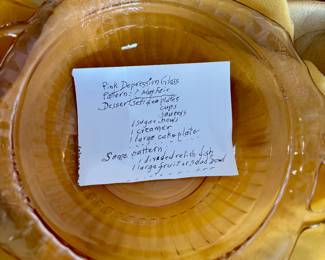 Pink Depression Glass
Pattern: ? Mayfair
Dessert set: 4 ea plates
cups
saucers
1 sugar bowl
1 creamer
1 large cake plate
Same pattern:
1 divided relish dish
1 large fruit or salad bowl